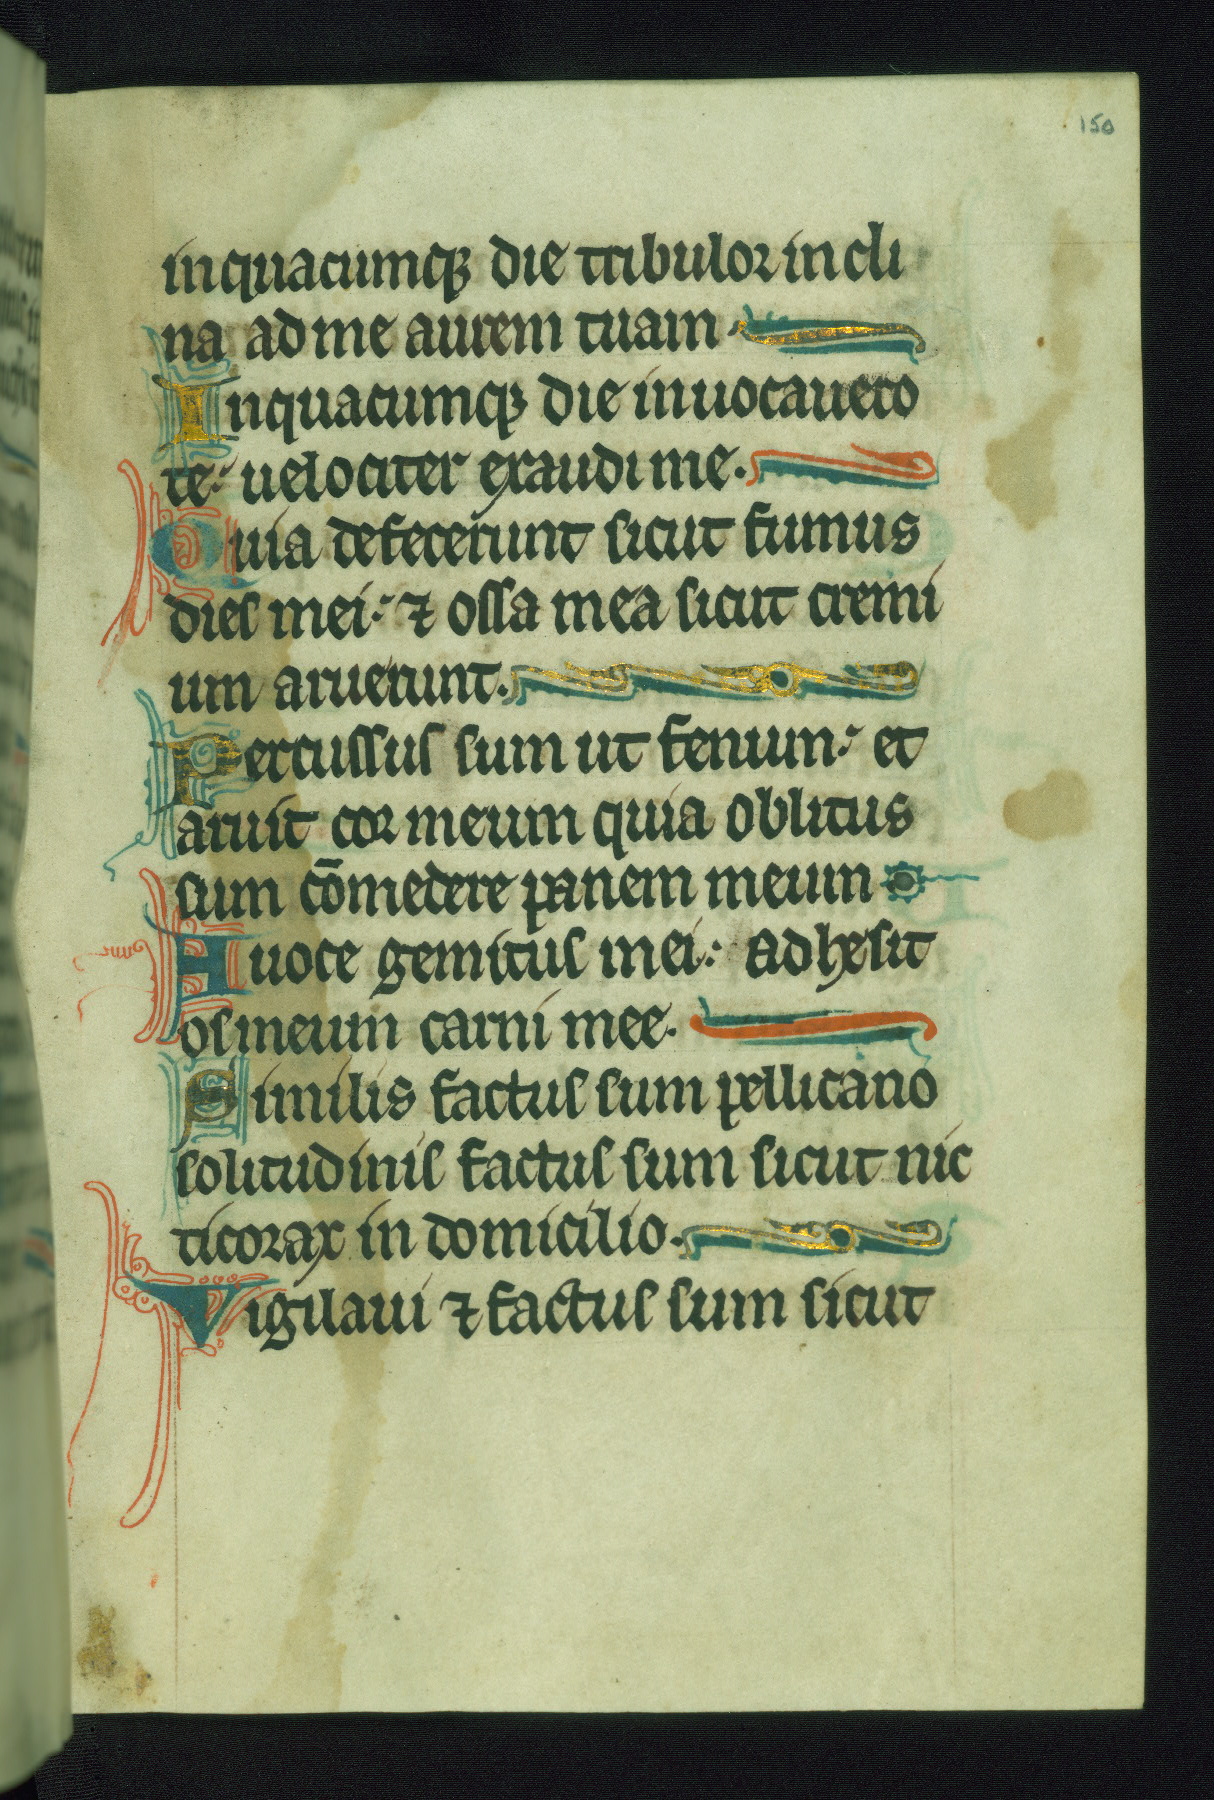 150
inquacumqꝫ die tribulor incli
na ad me aurem tuam
Inquacumqꝫ die inuocauero
te: uelociter exaudi me.
Quia defecerunt sicut fumus
dies mei: ⁊ ossa mea sicut cremi
um aruerunt.
Percussus sum ut fenum: et
aruit cor meum quia oblitus
sum cōmedere panem meum
A uoce gemitus mei: adhesit
os meum carni mee.
Similis factus sum pellicano
solitudinis factus sum sicut nic
ticorax in domicilio.
Vigilaui ⁊ factus sum sicut